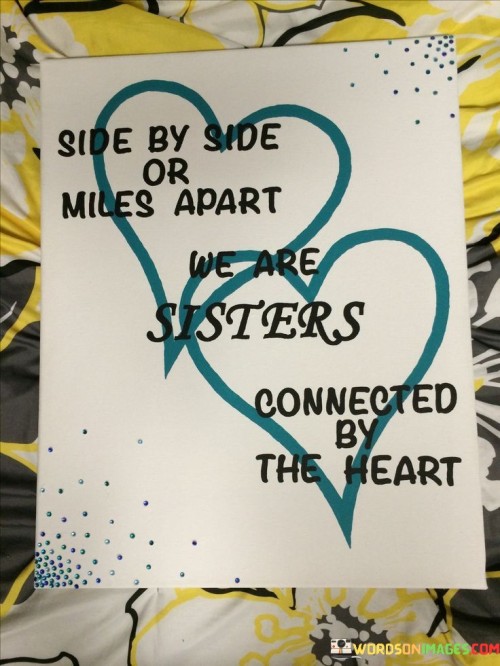 SIDE BY SIDE
OR
MILES APART
WE ARE
SISTERS
CONNECTED
BY
THE HEART
WORDSONIMAGES.COM